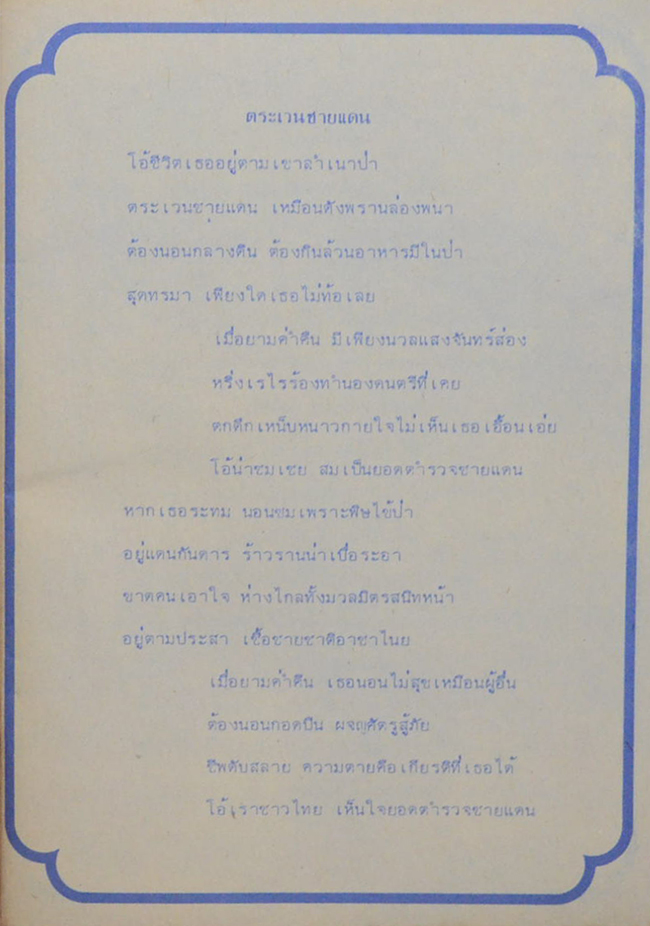 ตระเวนชายแดน
โอ้ชีวิตเธออยู่ตามเขาลำเนาป่า
ตระเวนชายแดน เหมือนดังพรานล่องพนา
ต้องนอนกลางดิน ต้องกินล้วนอาหารมีในป่า
สุดทรมา เพียงใดเธอไม่ท้อเลย
เมื่อยามค่ำคืน มีเพียงนวลแสงจันทร์ส่อง
หริ่งเรไรร้องทำนองดนตรีที่เคย
ตกดึกเหน็บหนาวกายใจไม่เห็นเธอเอื้อนเอ่ย
โอ้น่าชมเชย สมเป็นยอดตำรวจชายแดน
หากเธอระทม นอนซมเพราะพิษไข้ป่า
อยู่แดนกันดาร ร้าวรานน่าเบื่อระอา
ขาดคนเอาใจ ห่างไกลทั้งมวลมิตรสนิทหน้า
อยู่ตามประสา เชื้อชายชาติอาชาไนย
เมื่อยามค่ำคืน เธอนอนไม่สุขเหมือนผู้อื่น
ต้องนอนกอดปืน ผจญศัตรูสู้ภัย
ชีพดับสลาย ความตายคือเกียรติที่เธอได้
โอ้เราชาวไทย เห็นใจยอดตำรวจชายแดน